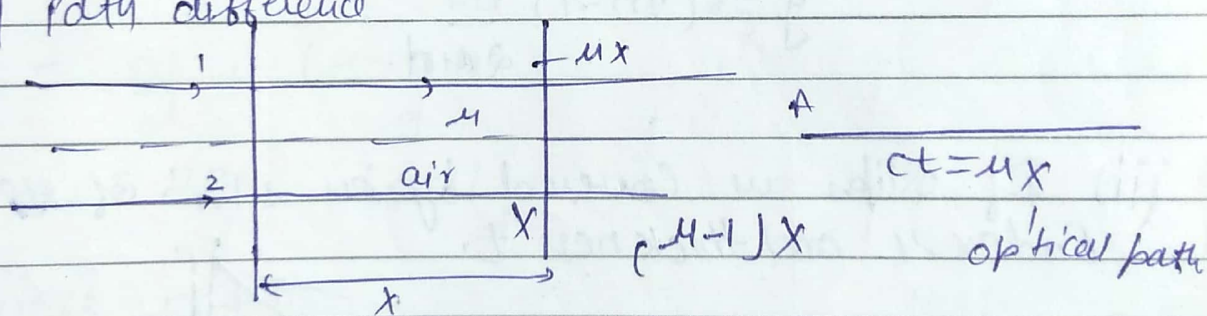 Path difference
1
μx
μ
A
air
ct = μx
2
X
(μ-1)X
optical path
x